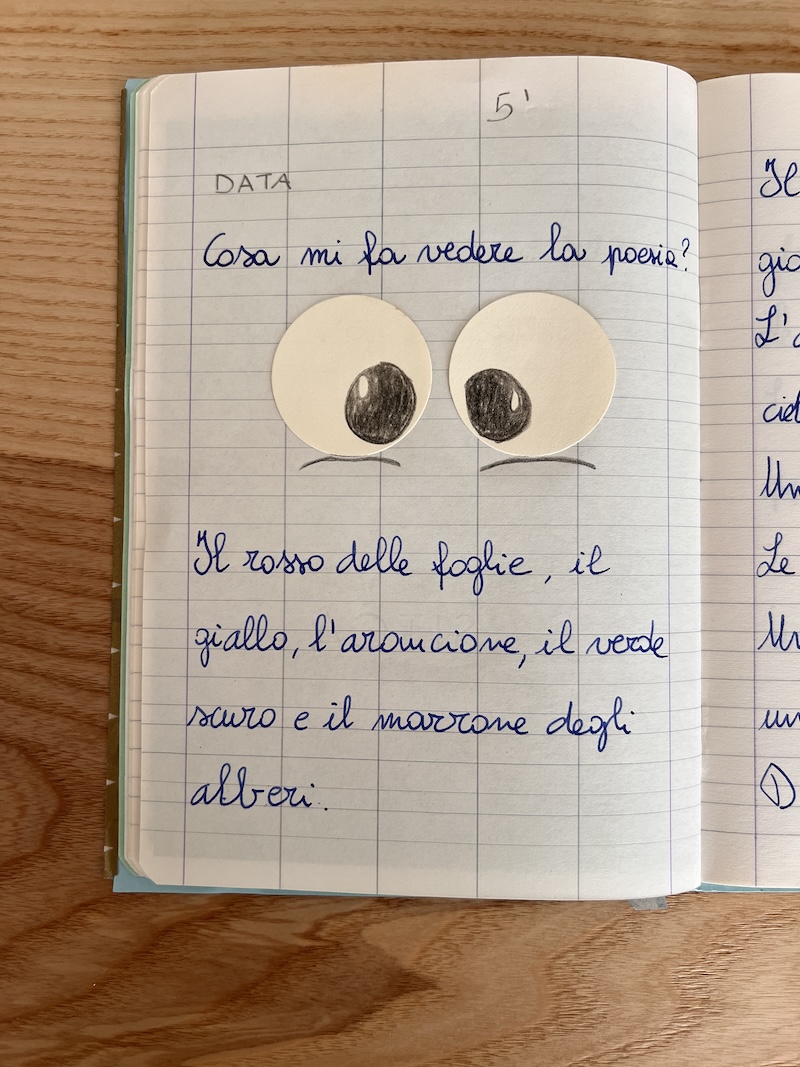 5'
DATA
Cosa mi fa vedere la poesia?
Il rosso delle foglie, il
giallo, l'arancione, il verde
scuro e il marrone degli
alberi.
Il
L'
Le